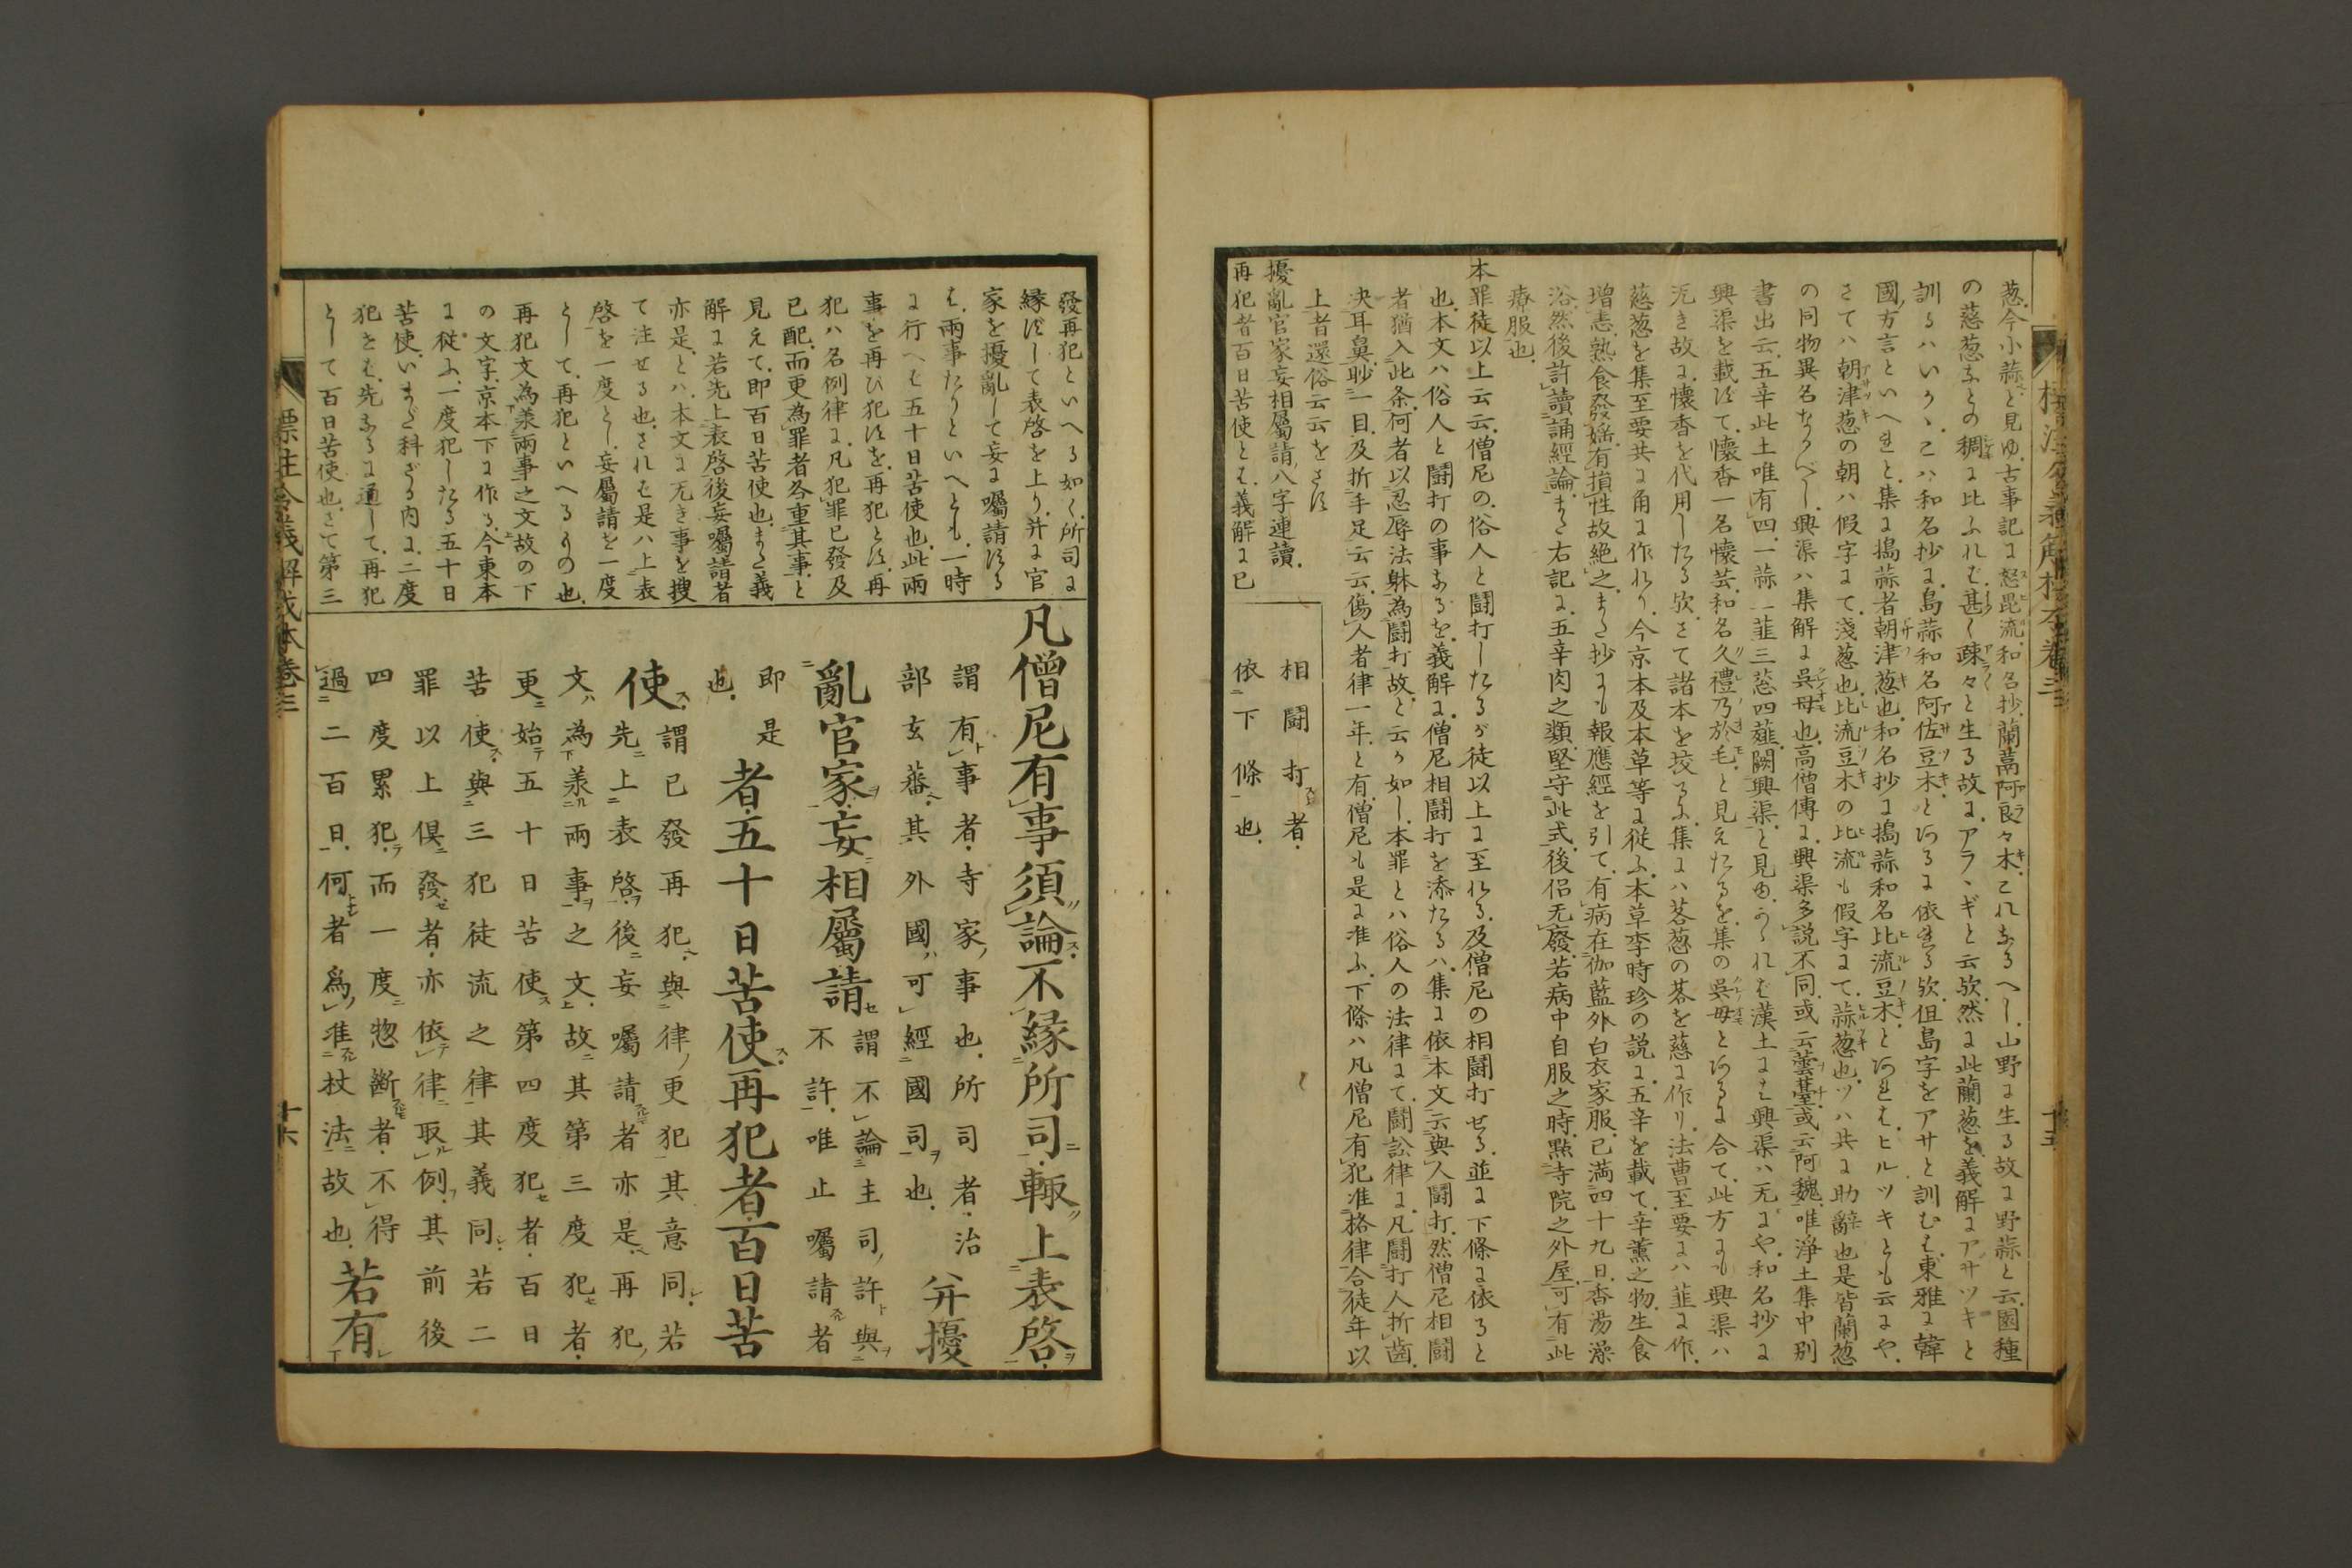 葱今小蒜と見ゆ古事記に怒毘流和名抄蘭蒚阿良々木これなるへし山野に生る故に野蒜と云園種
の葱なとの稠に比ふれは甚く疎々と生る故にアラヽギと云欤然に此蘭葱を義解にアサツキと
訓るハいかゝこハ和名抄に島蒜和名阿佐豆木とあるに依れる欤但島字をアサと訓むは東雅に韓
國方言といへれと集に搗蒜者朝津葱也和名抄に搗蒜和名比流豆木とあれはヒルツキとも云にや
さてハ朝津葱の朝ハ假字にて淺葱也比流豆木の比流も假字にて蒜葱也ツハ共に助辭也是皆蘭葱
の同物異名なるべし興渠ハ集解に呉母也高僧傳に興渠多説不同或云蕓薹或云阿魏唯淨土集中別
書出云五辛此土唯有四一蒜二韮三葱四薤闕興渠と見ゆかゝれは漢土にも興渠ハ无にや和名抄に
興渠を載すて懷香一名懷芸和名久禮乃於毛と見えたるを集の呉母とあるに合て此方にも興渠ハ
无き故に懷香を代用したる欤さて諸本を挍るに集にハ茖葱の茖を慈に作り法曹至要にハ韮に作
慈葱を集至要共に角に作れり今京本及本草等に従ふ本草李時珍の説に五辛を載て辛薫之物生食
増恚熟食發婬有損性故絶之また抄にも報應經を引て有病在伽藍外白衣家服已満四十九日香湯澡
浴然後許讀誦經論また右記に五辛肉之類堅守此式後侶无廢若病中自服之時點寺院之外屋可有此
療服也
本罪徒以上云云僧尼の俗人と闘打したるが徒以上に至れる及僧尼の相闘打せる並に下條に依ると
也本文ハ俗人と闘打の事なるを義解に僧尼相闘打を添たるハ集に依本文云與人闘打然僧尼相闘
者猶入此条何者以忍辱法躰為闘打故と云か如し本罪とハ俗人の法律にて闘訟律に凡闘打人折齒
决耳鼻眇一目及折手足云云傷人者律一年と有僧尼も是に准ふ下條ハ凡僧尼有犯准格律合徒年以
上者還俗云云をさす
擾亂官家妄相屬請八字連讀
再犯者百日苦使とは義解に已
相闘打者
依下條也
十五
發再犯といへる如く所司に
縁すして表啓を上り并に官
家を擾亂して妄に囑請する
は兩事たりといへとも一時
に行へは五十日苦使也此兩
事を再ひ犯すを再犯とす再
犯ハ名例律に凡犯罪已發及
已配而更為罪者各重其事と
見えて即百日苦使也また義
解に若先上表啓後妄囑請者
亦是とハ本文に无き事を捜
て注せる也されは是ハ上表
啓を一度とし妄屬請を一度
として再犯といへるもの也
再犯文為兼兩事之文故の下
の文字京本下に作る今東本
に従ふ一度犯したる五十日
苦使いまだ科ざる内に二度
犯さは先なるに通して再犯
として百日苦使也さて第三
凡僧尼有事須論不縁所司輙上表啓
謂有事者寺家事也所司者治
部玄蕃其外國可經國司也
并擾
亂官家妄相屬請
謂不論主司許與
不許唯止囑請者
即是
也
者五十日苦使再犯者百日苦
使
謂已發再犯與律更犯其意同若
先上表啓後妄囑請者亦是再犯
文為兼兩事之文故其第三度犯者
更始五十日苦使第四度犯者百日
苦使與三犯徒流之律其義同若二
罪以上倶發者亦依律取例其前後
四度累犯而一度惣斷者不得
過二百日何者為准杖法故也
若有
標注令義解挍本卷三
十六